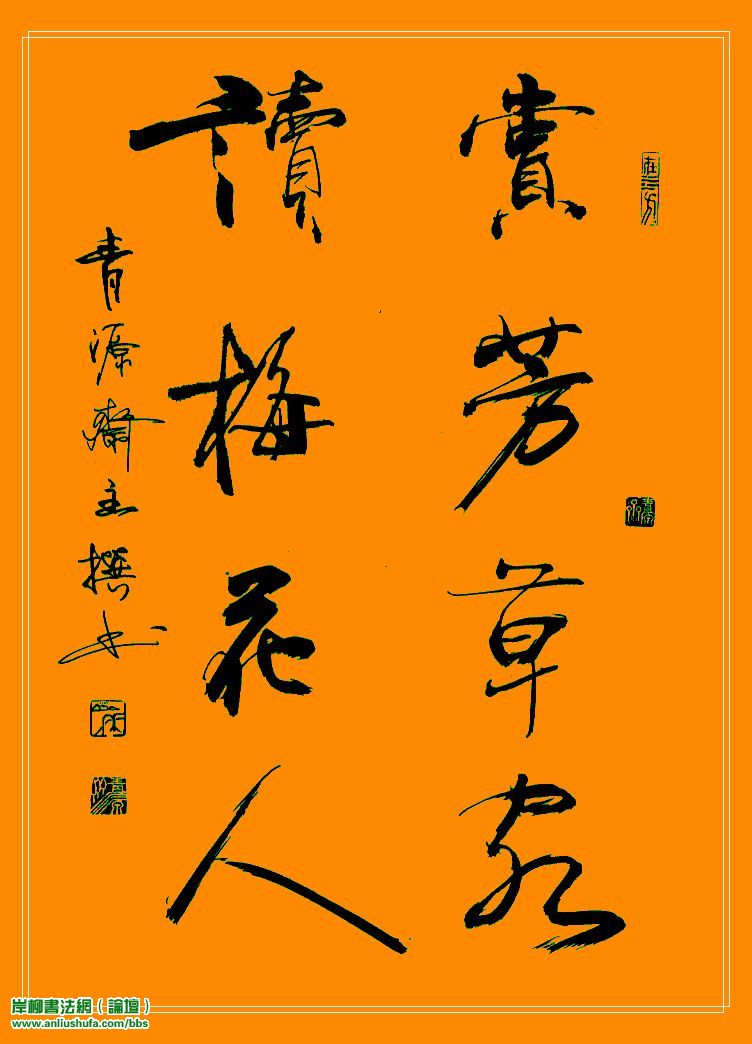 賞芳草家
讀梅花人
青源齋主撰书
岸柳書法網（論壇）
www.anliushufa.com/bbs